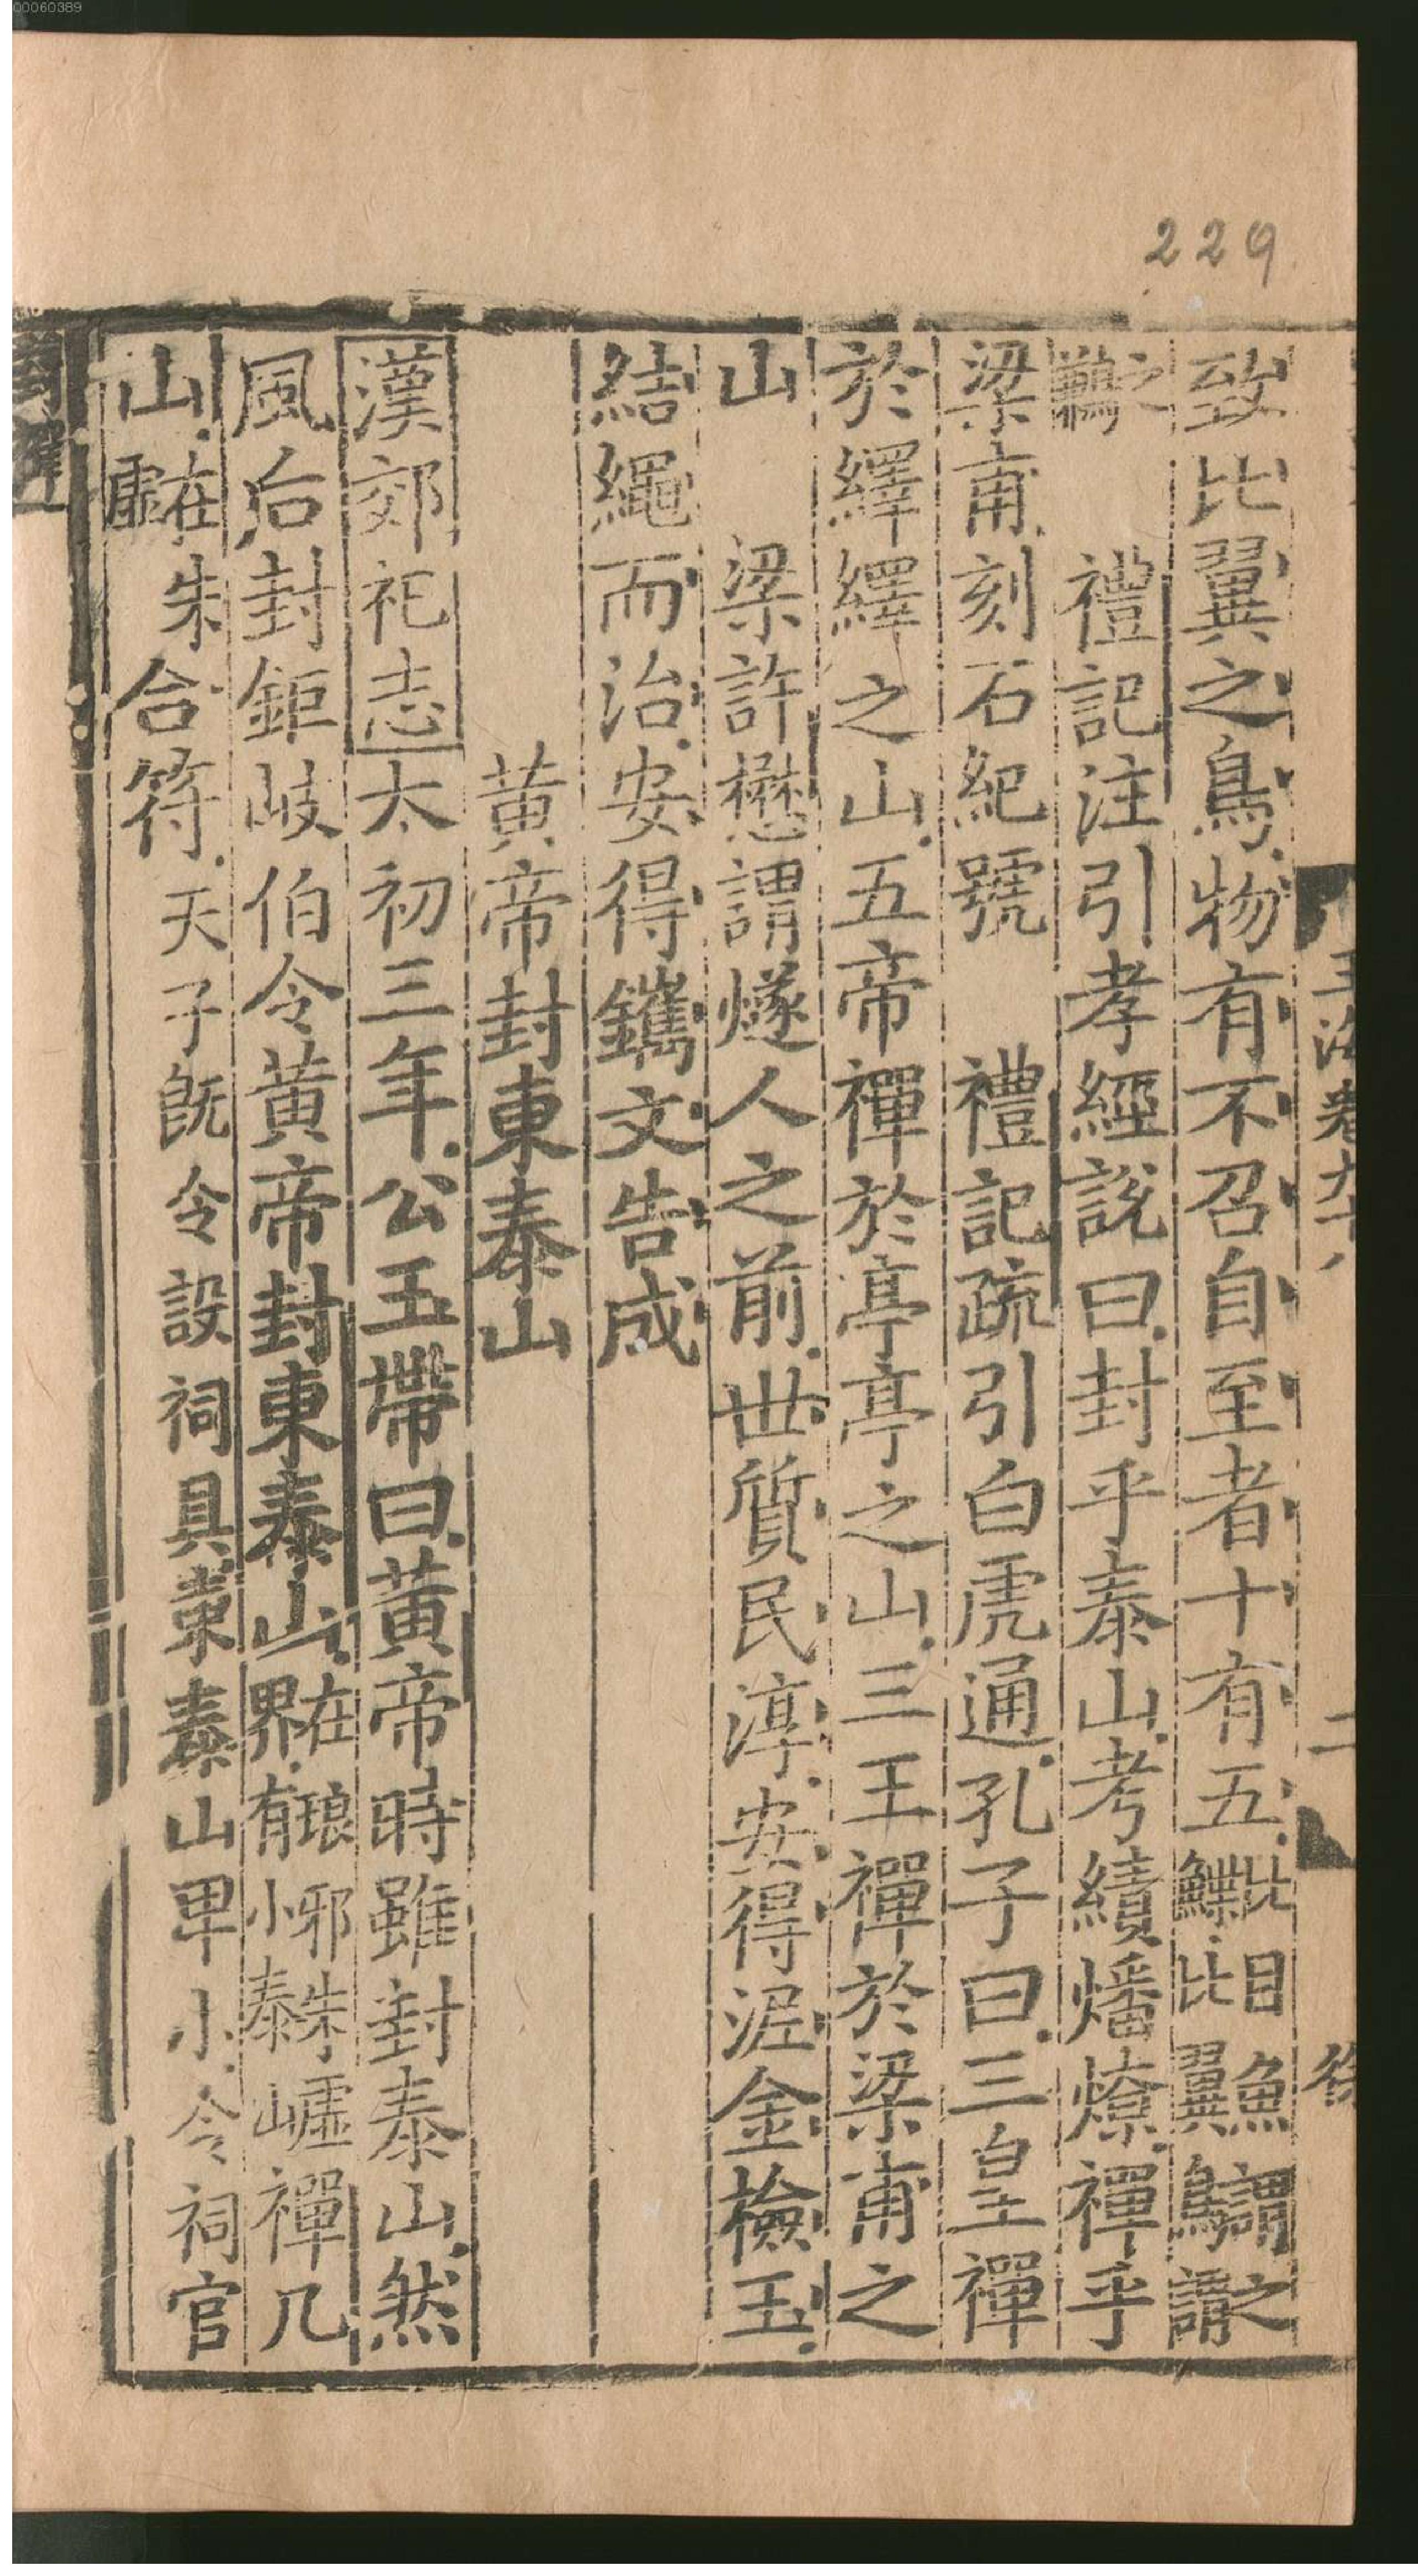 00060389
229
玉海卷九十八
二
致比翼之鳥物有不召自至者十有五比目魚謂之鰈比翼鳥謂
之鶼 禮記注引孝經說曰封乎泰山考績燔燎禪乎
梁甫刻石紀號 禮記疏引白虎通孔子曰三皇禪
於繹繹之山五帝禪於亭亭之山三王禪於梁甫之
山 梁許懋謂燧人之前世質民淳安得泥金檢玉
結繩而治安得鐫文告成
黃帝封東泰山
漢郊祀志太初三年公玉帶曰黃帝時雖封泰山然
風后封鉅岐伯令黃帝封東泰山在琅邪朱虛界有小泰山禪凡
山在朱虛合符天子旣令設祠具東泰山卑小令祠官
封禪